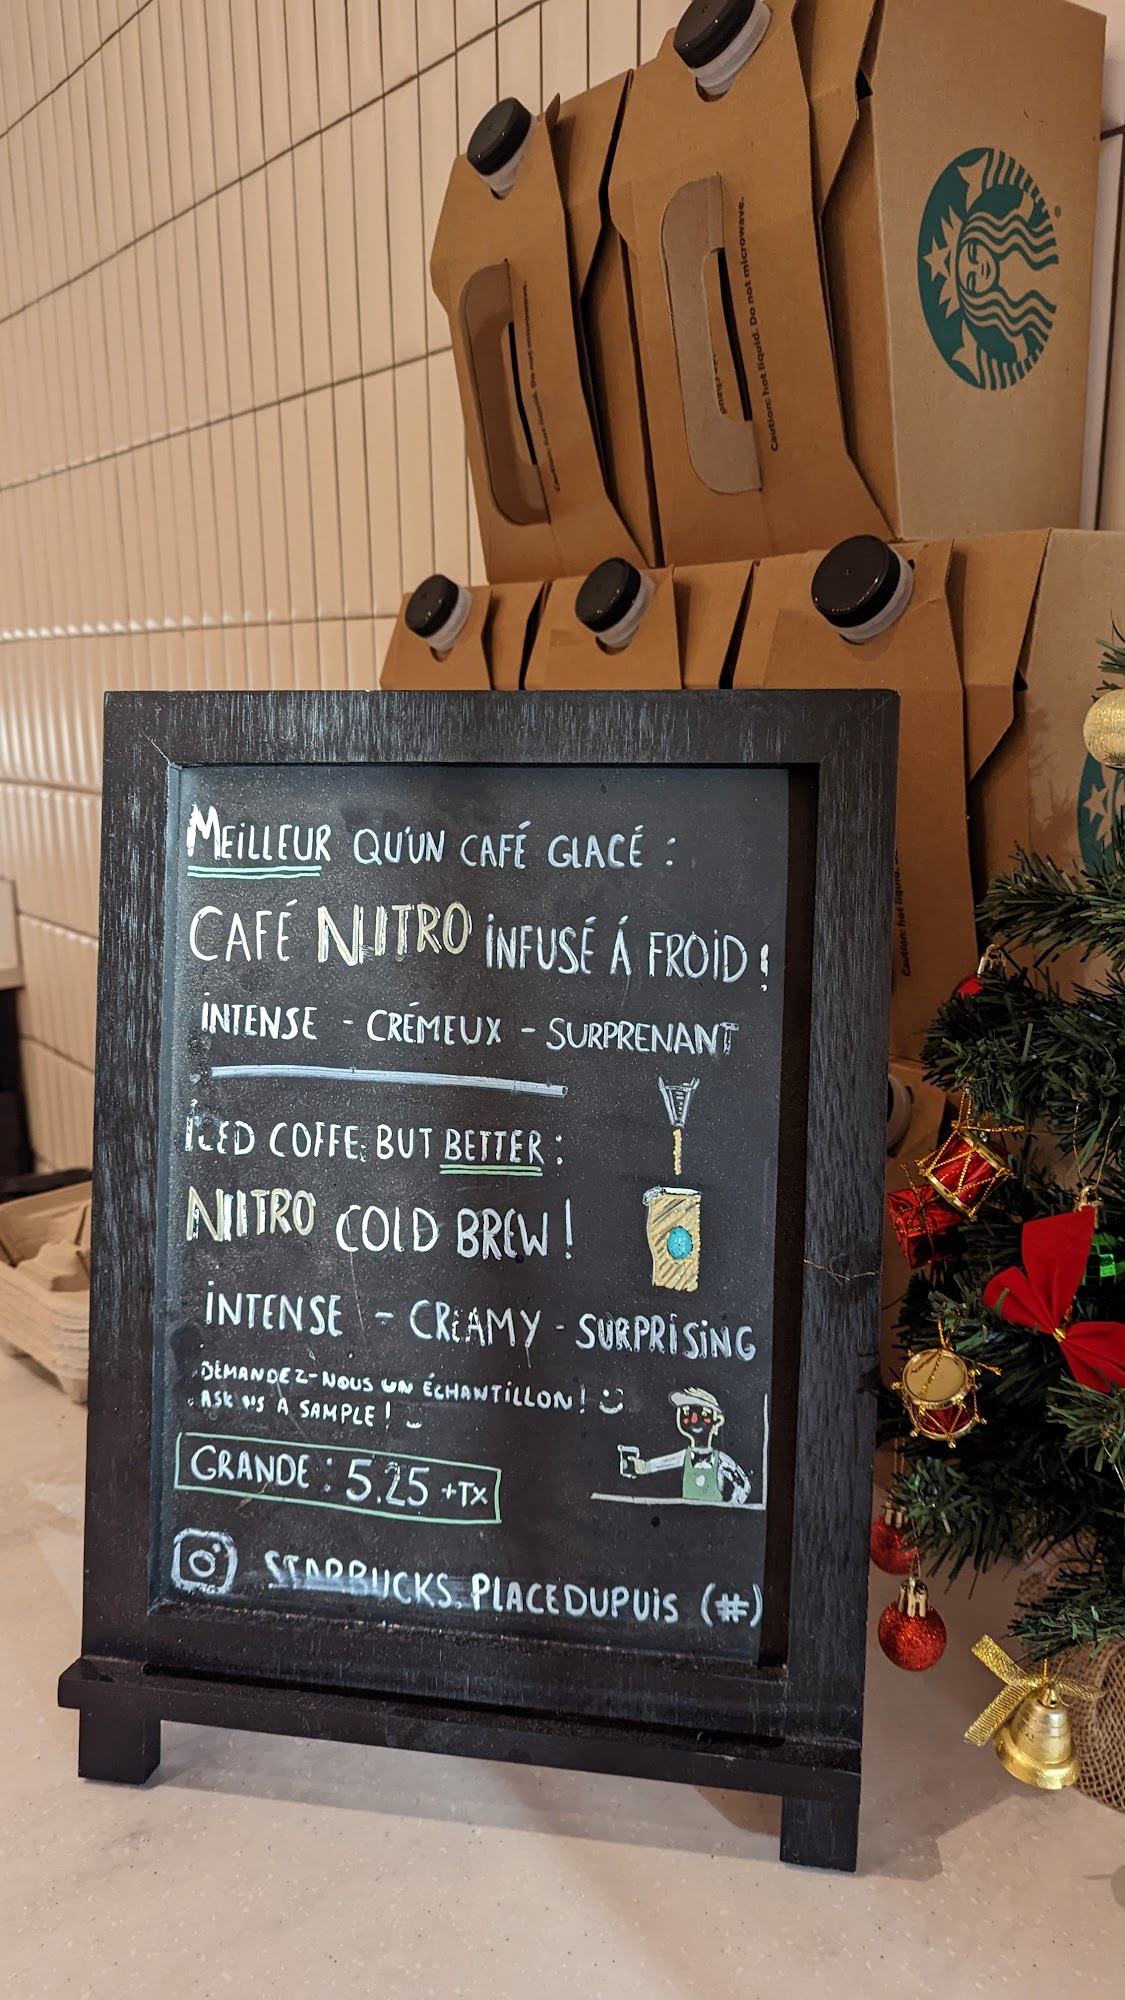 Caution: hot liquid. Do not microwave.
Caution: hot liquid. Do not microwave.
MEiLLEUR QU'UN CAFÉ GLACÉ :
CAFÉ NITRO iNFUSÉ Á FROiD !
iNTENSE - CRÉMEUX - SURPRENANT
iCED COFFE BUT BETTER :
NITRO COLD BREW !
iNTENSE - CREAMY - SURPRiSiNG
DEMANDEZ-NOUS UN ÉCHANTILLON !
ASK US A SAMPLE !
GRANDE : 5.25 +TX
STARBUCKS.PLACEDUPUiS (#)